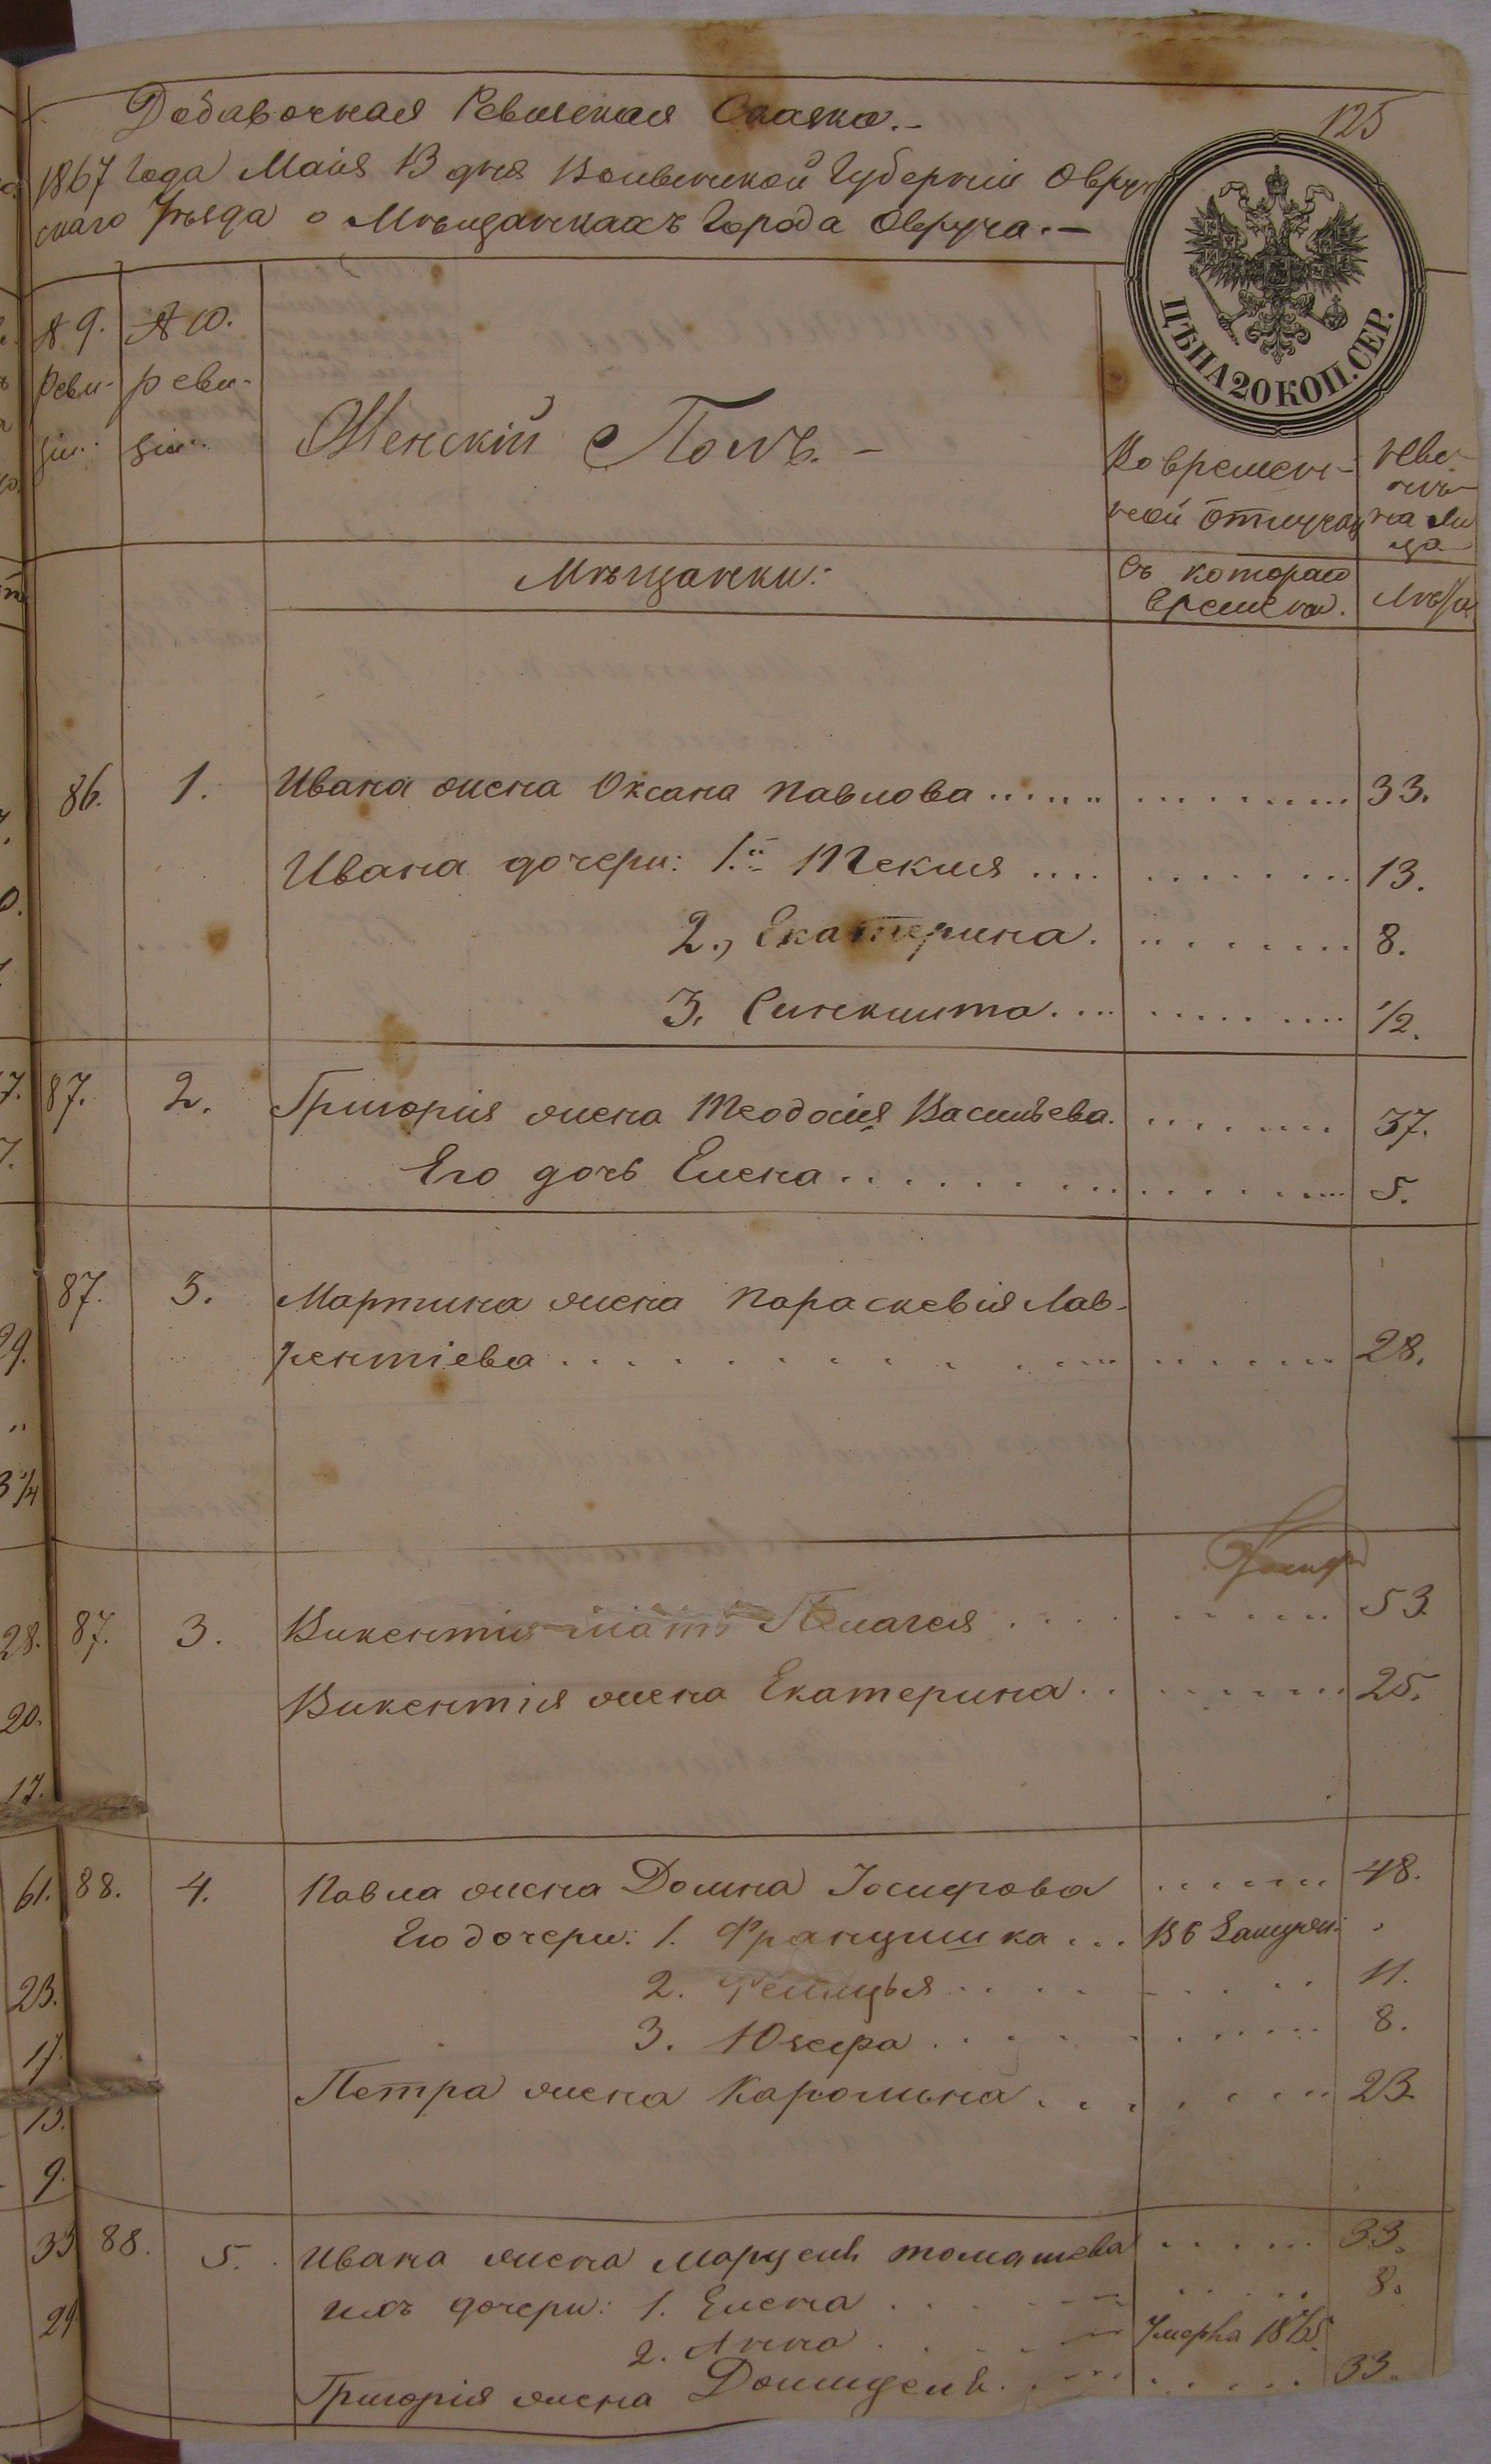 Добавочная Ревизская Сказка.-
125
1867 Года Маія 13 дня Волынской Губерніи Овруч
скаго Уѣзда о Мѣщанкахъ Города Овруча.-
ЦѢНА 20 КОП. СЕР.
№ 9. Реви- зіи.
№ 10. реви- зіи.
Женскій Полъ. -
Во времен- ной отлучкѣ
на ли ца
Мѣщанки:
Съ котораго времени.
Лѣта
86. 1. Ивана жена Оксана Павлова 33.
Ивана дочери: 1.я Текля 13.
2., Екатерина. 8.
3. Синклита. 1/2.
87. 2. Григорія жена Теодосія Васильева. 37.
Его дочь Елена 5.
87. 3. Мартина жена Параскевія Лав-
рентіева 28.
87. 3. Викентія мать Пелагея 53
Викентія жена Екатерина 25.
88. 4. Павла жена Домна Іосифова 48.
Его дочери: 1. Францишка Въ Замуж.
2. Фелиція 11.
3. Юзефа 8.
Петра жена Карольна 23.
88. 5. Ивана жена Марцеля Томашева 33.
ихъ дочери: 1. Елена 8.
2. Анна Умерла 1865
Григорія жена 33.